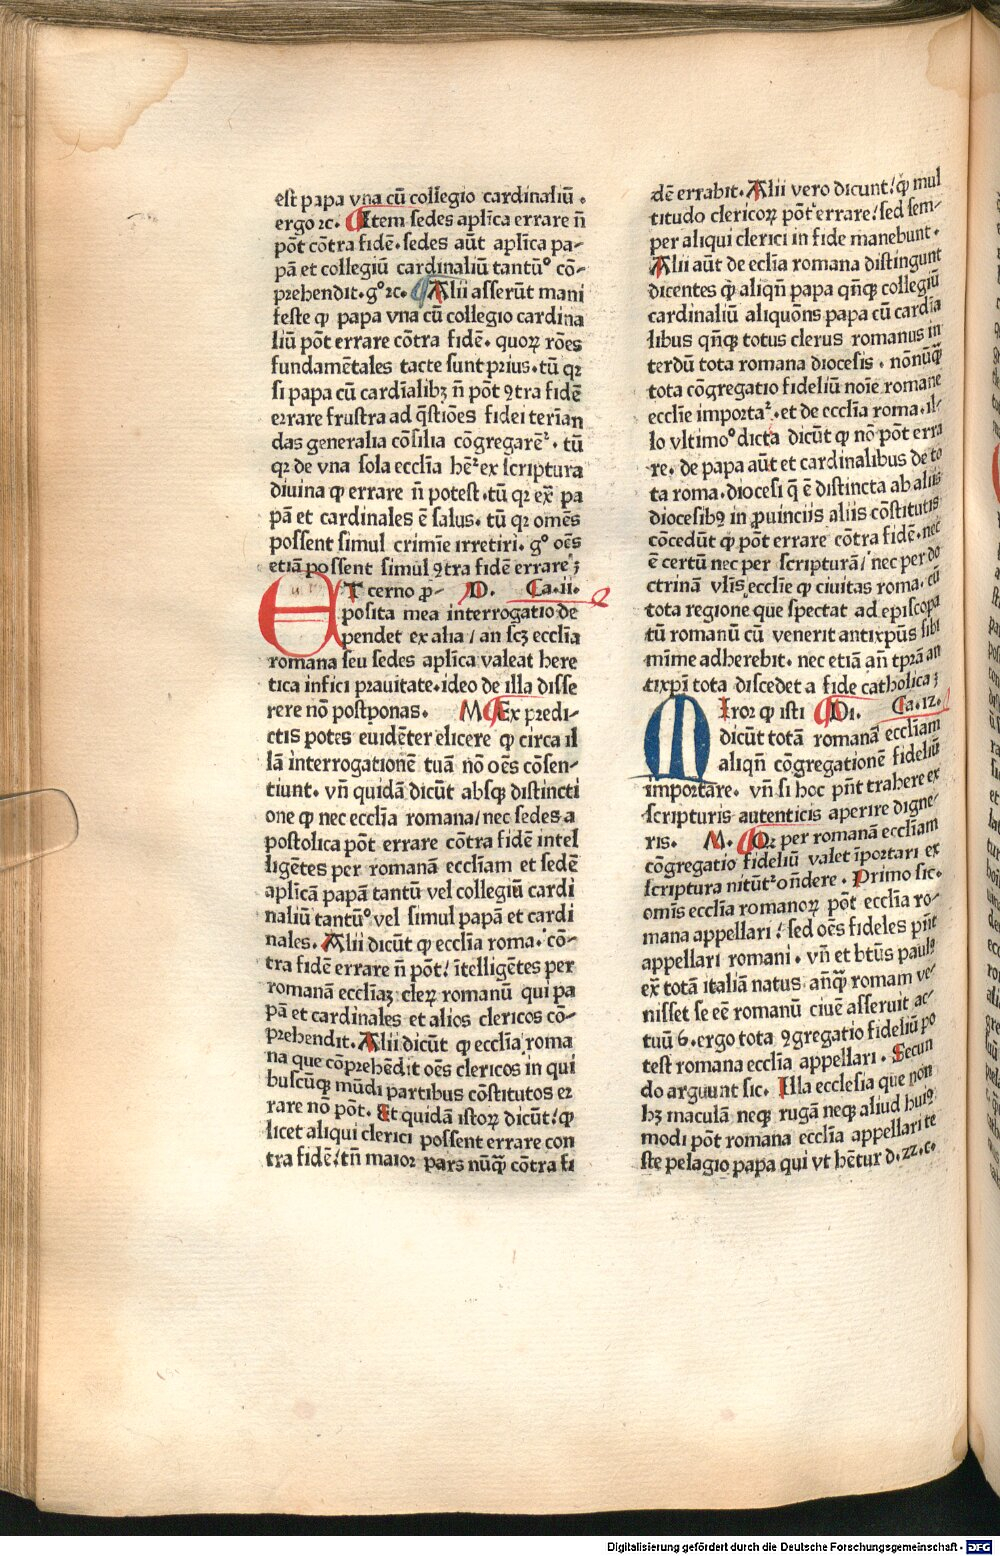 est papa vna cū collegio cardinaliū .
ergo ⁊c. Item sedes aplīca errare n̄
pōt cōtra fidē. sedes aūt aplīca pa-
pā et collegiū cardinaliū tantūᵒ cō-
prehendit. gᵒ ⁊c. Alii asserūt mani
feste ꝙ papa vna cū collegio cardina
liū pōt errare cōtra fidē. quoꝝ rōes
fundamētales tacte sunt prius. tū qꝛ
si papa cū cardīalibꝫ n̄ pōt ꝯtra fidē
errare frustra ad q̄stiōes fidei terīan
das generalia cōsilia cōgregarēᷣ. tū
qꝛ de vna sola ecclīa hēᷣ ex scriptura
diuina ꝙ errare n̄ potest. tū qꝛ ex̄ pa
pā et cardinales ē salus. tū qꝛ omēs
possent simul crimīe irretiri. gᵒ oēs
etiā possent simul ꝯtra fidē errare ꝫ
ET cerno p̄- D. Ca.ii.
posita mea interrogatio de
pendet ex alia / an scꝫ ecclīa
romana seu sedes aplīca valeat here
tica infici prauitate. ideo de illa disse
rere nō postponas. M Ex predi-
ctis potes euidēter elicere ꝙ circa il
lā interrogationē tuā nō oēs cōsen-
tiunt. vn̄ quidā dicūt absqꝫ distincti
one ꝙ nec ecclīa romana / nec sedes a
postolica pōt errare cōtra fidē intel
ligētes per romanā ecclīam et sedē
aplīcā papā tantū vel collegiū cardi
naliū tantūᵒ vel simul papā et cardi
nales. Alii dicūt ꝙ ecclīa roma. cō-
tra fidē errare n̄ pōt! ītelligētes per
romanā ecclīaꝫ cleꝝ romanū qui pa
pā et cardinales et alios clericos cō-
prehendit. Alii dicūt ꝙ ecclīa roma
na que cōprehēdit oēs clericos in qui
buscūqꝫ mūdi partibus cōstitutos er
rare nō pōt. Et quidā istoꝝ dicūt! ꝙ
licet aliqui clerici possent errare con
tra fidē! tn̄ maior pars nūq̄ꝫ cōtra fi
dē errabit. Alii vero dicunt! ꝙ mul
titudo clericoꝝ pōt errare! sed sem-
per aliqui clerici in fide manebunt.
Alii aūt de eclīa romana distingunt
dicentes ꝙ aliqn̄ papa qn̄qꝫ collegiū
cardinaliū aliquōns papa cū cardīa
libus qn̄qꝫ totus clerus romanus in
terdū tota romana diocesis . nōnūq̄ꝫ
tota cōgregatio fideliū noīe romane
ecclīe importaᷣ. et de ecclīa roma. il-
lo vltimoᵒ dicta dicūt ꝙ nō pōt erra
re. de papa aūt et cardinalibus de to
ta roma. diocesi q̄ ē distincta ab aliis
diocesibꝯ in ꝓuinciis aliis cōstitutis
cōcedūt ꝙ pōt errare cōtra fidē. nec
ē certū nec per scripturā / nec per do
ctrinā vlīs ecclīe ꝙ ciuitas roma. cū
tota regione que spectat ad episcopa
tū romanū cū venerit antixp̄us sibi
mīme adherebit. nec etiā an̄ tp̄rā an
tixpī tota discedet a fide catholica ꝫ
MIror ꝙ isti Di. Ca.12.
dicūt totā romanā ecclīam
aliqn̄ cōgregationē fideliū
importare. vn̄ si hoc pn̄t trahere ex
scripturis autenticis aperire digne-
ris. M. Qꝛ per romanā ecclīam
cōgregatio fideliū valet īportari ex
scriptura nitūtᷣ on̄dere . Primo sic.
omīs ecclīa romanoꝝ pōt ecclīa ro-
mana appellari! sed oēs fideles pn̄t
appellari romani . vn̄ et btūs paulꝯ
ex̄ totā italiā natus an̄q̄ꝫ romam ve-
nisset se eē romanū ciuē asseruit ac-
tuū 6. ergo tota ꝯgregatio fideliū po
test romana ecclīa appellari . Secun
do arguunt sic. Illa ecclesia que non
hꝫ maculā neqꝫ rugā neqꝫ aliud huiꝯ
modi pōt romana ecclīa appellari te
ste pelagio papa qui vt hētur d. 22. c.
Digitalisierung gefördert durch die Deutsche Forschungsgemeinschaft - DFG